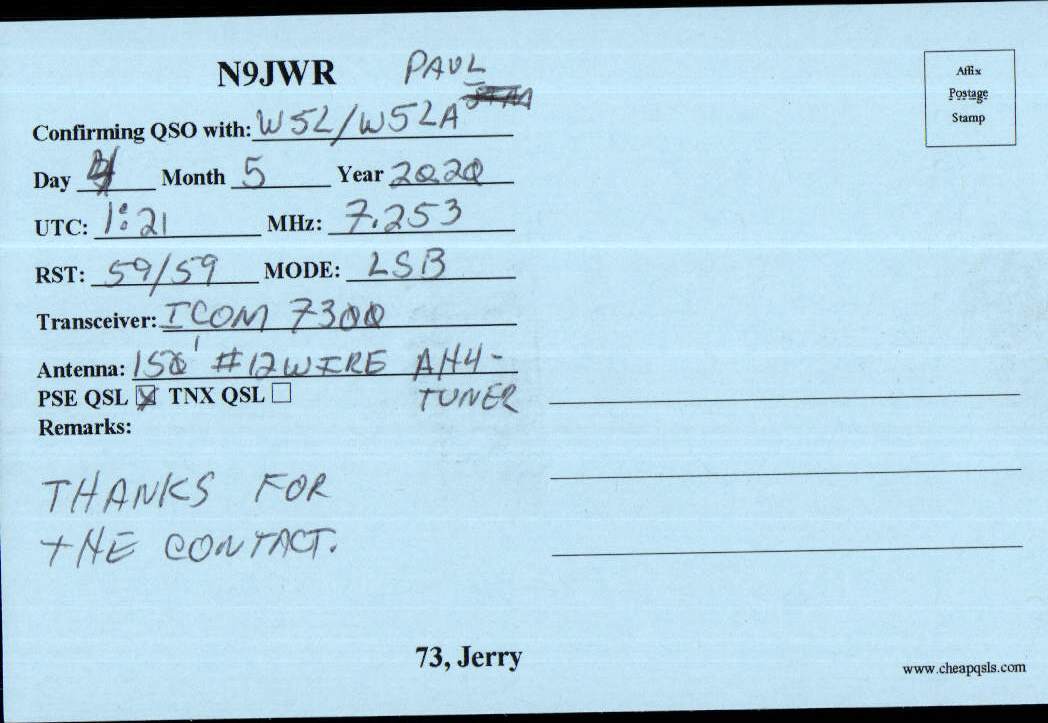 N9JWR PAUL
Confirming QSO with: W5L/W5LA
Day 4 Month 5 Year 2020
UTC: 1:21 MHz: 7.253
RST: 59/59 MODE: LSB
Transceiver: ICOM 7300
Antenna: 150' #12 WIRE AH4-
PSE QSL ☒ TNX QSL ☐ TUNER
Remarks:
THANKS FOR
THE CONTACT.
73, Jerry
Affix
Postage
Stamp
www.cheapqsls.com